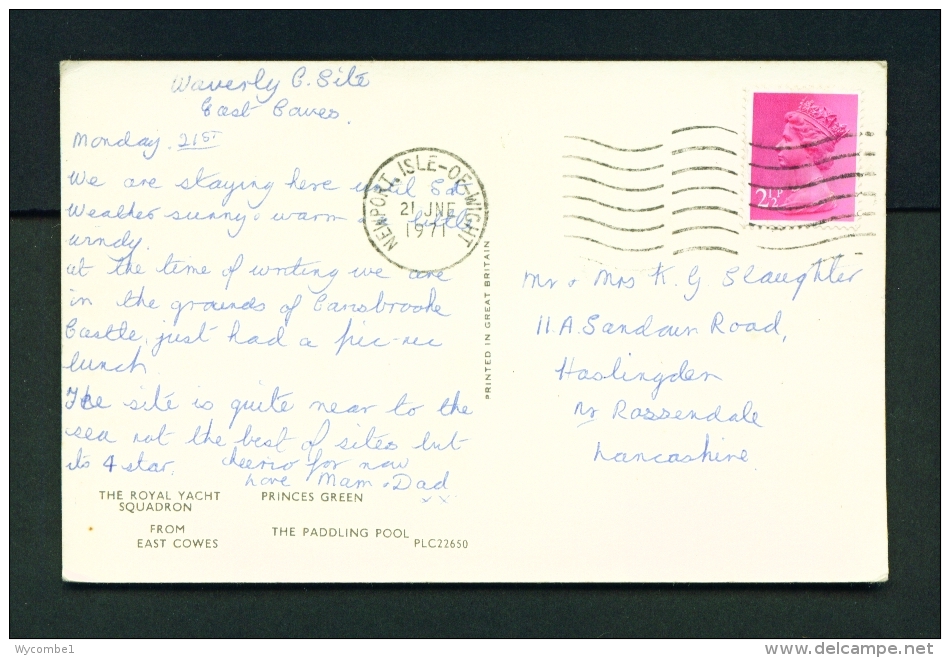 Waverly C. Site
East Cowes.
Monday. 21ST
We are staying here until Sat
Weather sunny & warm a little
windy.
at the time of writing we are
in the grounds of Carisbrooke
Castle, just had a pic-nic
lunch.
The site is quite near to the
sea not the best of sites but
its 4 star. cheerio for now
Love Mam & Dad
x x
THE ROYAL YACHT
SQUADRON
PRINCES GREEN
FROM
EAST COWES
THE PADDLING POOL
PLC22650
PRINTED IN GREAT BRITAIN
NEWPORT, ISLE-OF-WIGHT
21 JNE
1971
2½P
Mr & Mrs K. G. Slaughter
11.A. Sandown Road,
Haslingden
Nr Rossendale
Lancashire.
Wycombe1
www.delcampe.net